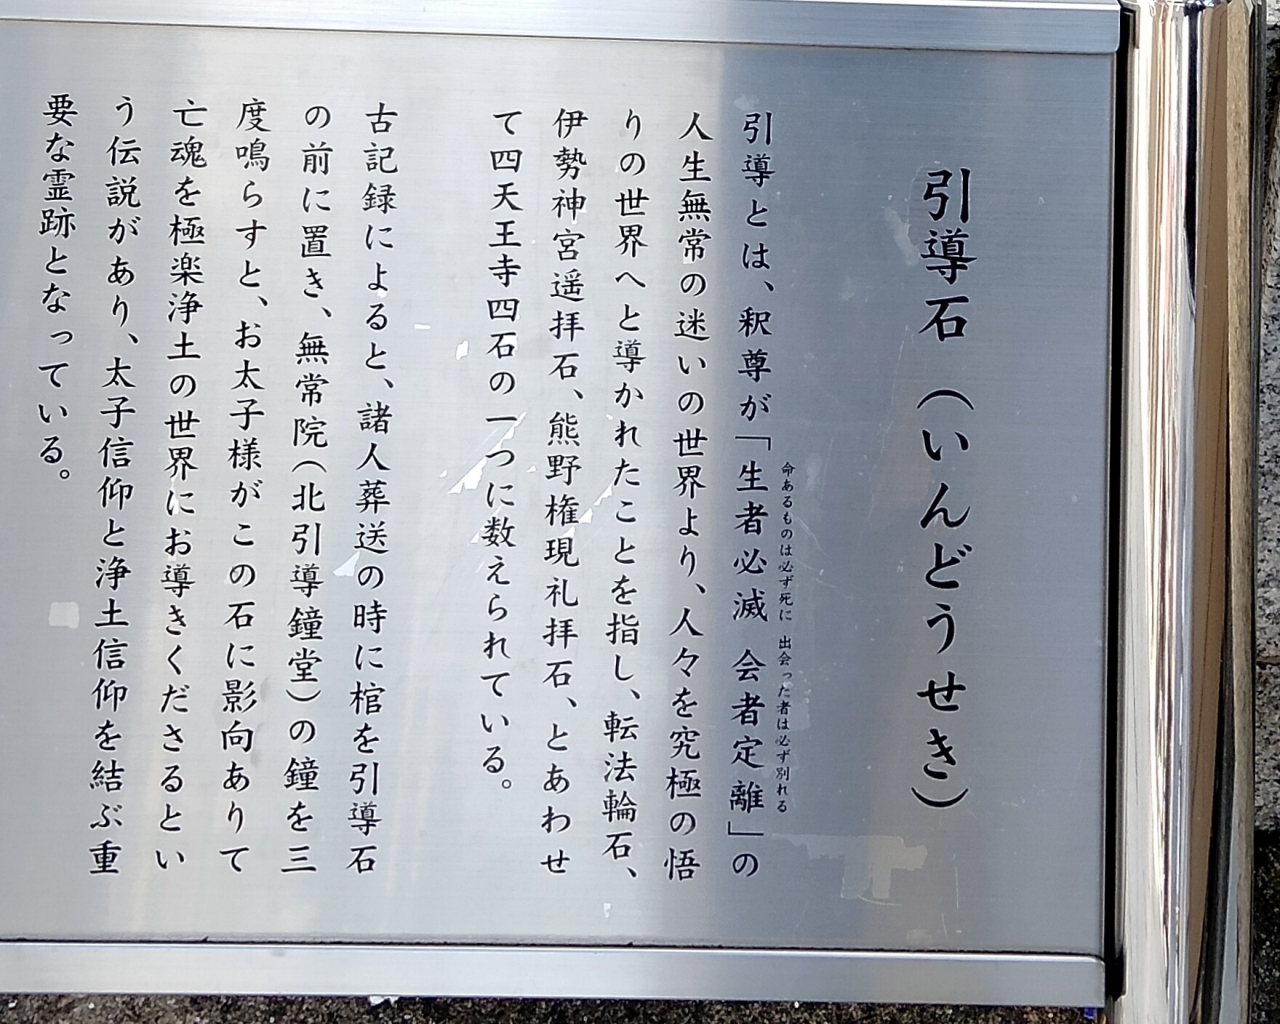 引導石（いんどうせき）
命あるものは必ず死に 出会った者は必ず別れる
引導とは、釈尊が「生者必滅 会者定離」の
人生無常の迷いの世界より、人々を究極の悟
りの世界へと導かれたことを指し、転法輪石、
伊勢神宮遥拝石、熊野権現礼拝石、とあわせ
て四天王寺四石の一つに数えられている。
古記録によると、諸人葬送の時に棺を引導石
の前に置き、無常院（北引導鐘堂）の鐘を三
度鳴らすと、お太子様がこの石に影向ありて
亡魂を極楽浄土の世界にお導きくださるとい
う伝説があり、太子信仰と浄土信仰を結ぶ重
要な霊跡となっている。